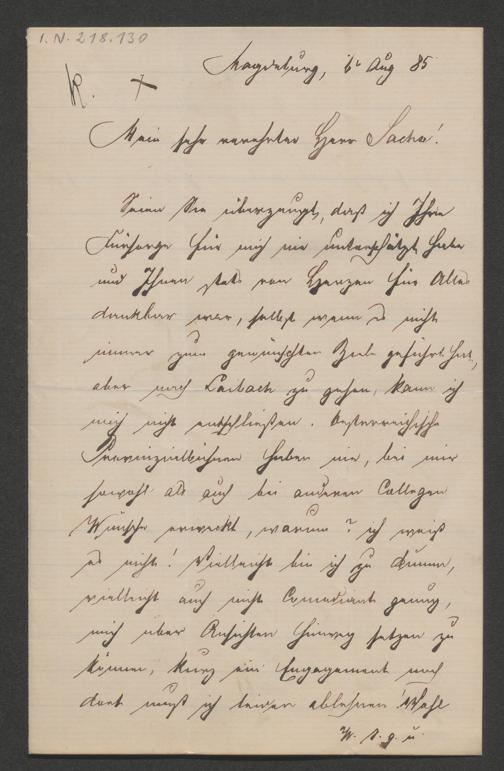 I. N. 218.130
K. +
Magdeburg, 6t Aug 85
Mein sehr verehrter Herr Sachs!
Seien Sie überzeugt, daß ich Ihre
Fürsorge für mich nie unterschätzt habe
und Ihnen stets von Herzen für Alles
dankbar war, selbst wenn es nicht
immer zum gewünschten Ziele geführt hat,
aber nach Laibach zu gehen, kann ich
mich nicht entschließen. Oesterreichische
Provinzialbühnen haben nie, bei mir
sowohl als auch bei anderen Collegen
Wünsche erweckt, warum? ich weiß
es nicht! Vielleicht bin ich zu dumm,
vielleicht auch nicht Comödiant genug,
mich über Ansichten hinweg setzen zu
können, kurz ein Engagement nach
dort muß ich leider ablehnen! Wohl
W. s. g. u.